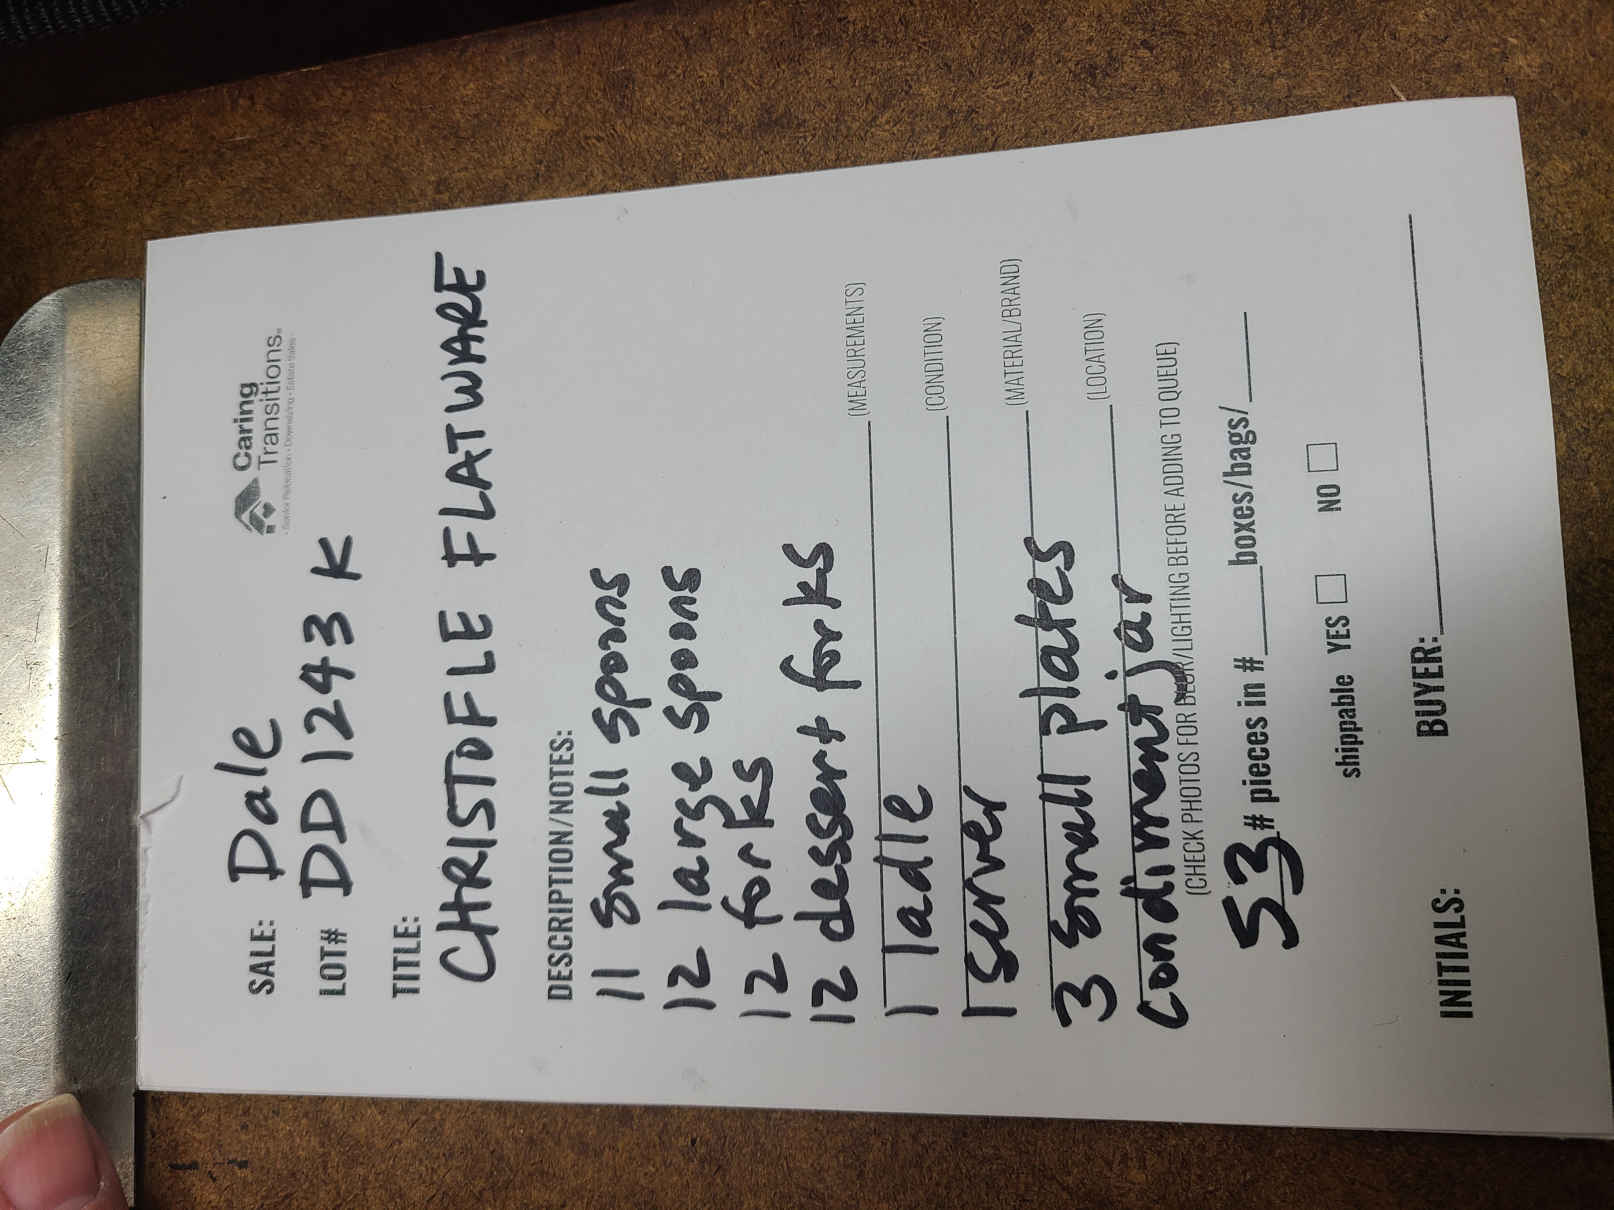 SALE: Dale
Caring
Transitions®
Senior Relocation • Downsizing • Estate Sales
LOT# DD1243 K
TITLE:
CHRISTOFLE FLATWARE
DESCRIPTION/NOTES:
11 small spoons
12 large spoons
12 forks
12 dessert forks
(MEASUREMENTS)
1 ladle
(CONDITION)
1 server
(MATERIAL/BRAND)
3 small plates
(LOCATION)
condiment jar
(CHECK PHOTOS FOR BLUR/LIGHTING BEFORE ADDING TO QUEUE)
53 # pieces in #____boxes/bags/____
shippable YES ☐ NO ☐
INITIALS: BUYER:____